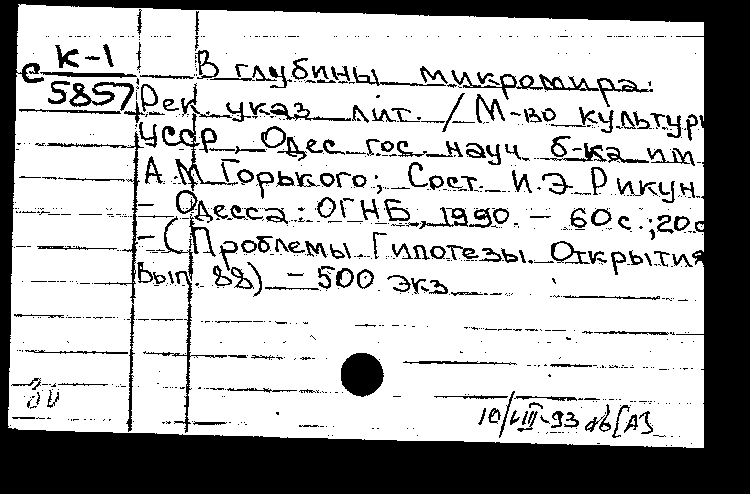 К-1
с
5857
В глубины микромира:
Рек. указ. лит. / М-во культуры
УССР, Одес. гос. науч. б-ка им.
А.М. Горького; Сост. И.Э. Рикун
- Одесса: ОГНБ, 1990. - 60 с.; 20 с
- (Проблемы. Гипотезы. Открытия
Вып. 88) - 500 экз.
10/VIII-93